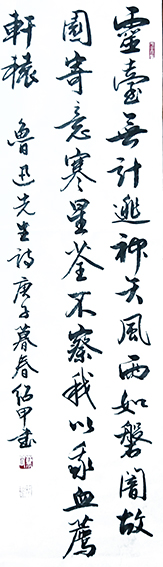 靈臺無計逃神矢風雨如磐闇故
園寄意寒星荃不察我以我血薦
軒轅 魯迅先生詩庚子暮春紹甲書